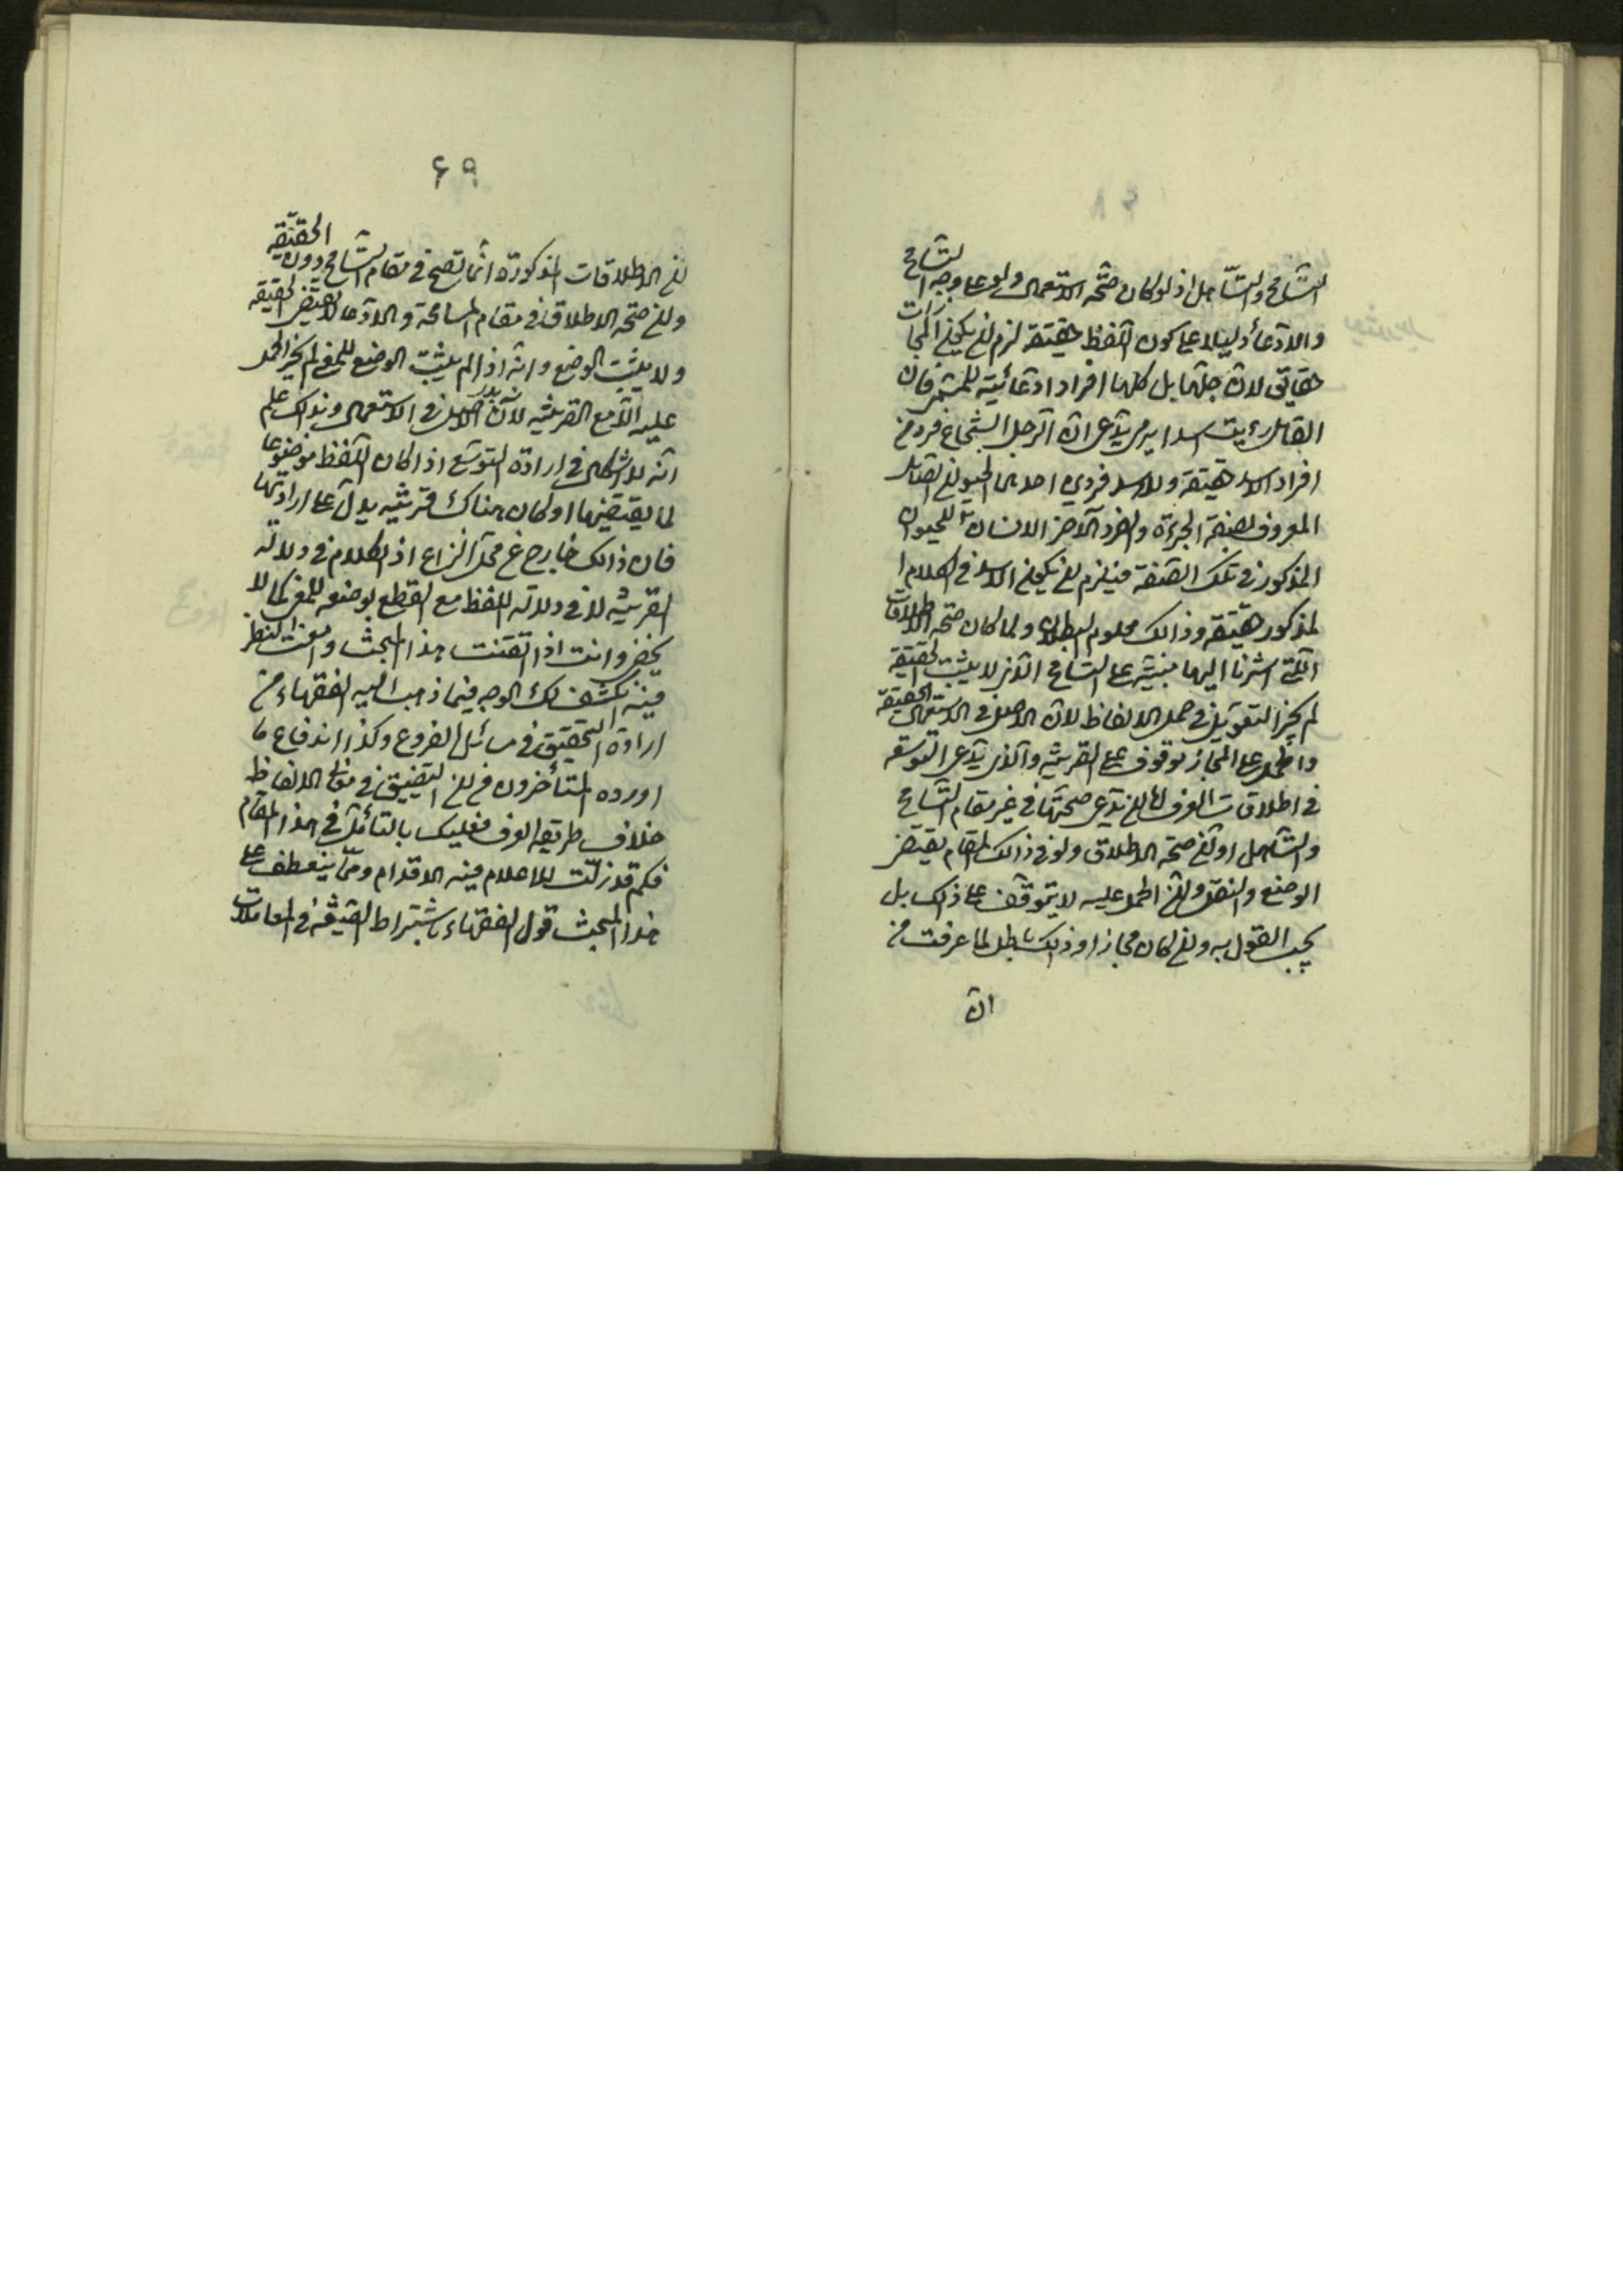 التسامح والتساهل اذ لو كان صحة الاستعمال ولو على وجه التسامح
والادعاء دليلا على كون اللفظ حقيقة لزم ان يكون المجازات
حقايق لان جلها بل كلها افراد ادعائية للمشهر فان
القائل رايت اسدا يرمي يدعى ان الرجل الشجاع فرد من
افراد الاسد حقيقة وللاسد فردين احدهما الحيوان
المعروف بصفة الجرءة والفرد الاخر الانسان للحيوان
المذكور في تلك الصفة فيلزم ان يكون الاسد في الكلام ا
لمذكور حقيقة وذالك معلوم البطلان ولما كان صحة الاطلاقات
التي اشرنا اليها مبنية على التسامح الذي لا يثبت الحقيقة
لم يجز التعويل في حمل الالفاظ لان الاصل في الاستعمال الحقيقة
والحمل على المجاز موقوف على القرينة والذي يدعى التوسعة
في اطلاقات العرف اما ان يدعى صحتها في غير مقام التسامح
والتساهل او ان صحة الاطلاق ولو في ذالك المقام يقتضي
الوضع والنقل وان الحمل عليه لا يتوقف على ذالك بل
يجب القول به وان كان مجازا وذالك باطل لما عرفت من
ان
٦٩
ان الاطلاقات المذكورة انما تصح في مقام التسامح دون الحقيقة
وان صحة الاطلاق في مقام المسامحة والادعا لا يقتضي الحقيقة
ولا يثبت الوضع وانه اذا لم يثبت الوضع للمعنى لم يجز الحمل
عليه الا مع القرينة لان الاصل في الاستعمال وبذالك علم
انه لا اشكال في ارادة التوسع اذا كان اللفظ موضوعا
لما يقتضيها او كان هناك قرينة يدل على ارادتها
فان ذالك خارج عن محل النزاع اذ الكلام في دلالة
القرينة لا في دلالة اللفظ مع القطع بوضعه للمعنى كما لا
يخفى وانت اذا اتقنت هذا المبحث وامعنت النظر
فيه تكشف لك الوجه فيما ذهب اليه الفقهاء من
ارادة التحقيق في مسائل الفروع وكذا اندفاع ما
اورده المتأخرون من ان التضييق في الالفاظ
خلاف طريقة العرف فعليك بالتأمل في هذا المقام
فكم قد زلت للاعلام فيه الاقدام ومما ينعطف على
هذا المبحث قول الفقهاء باشتراط في المعاملات